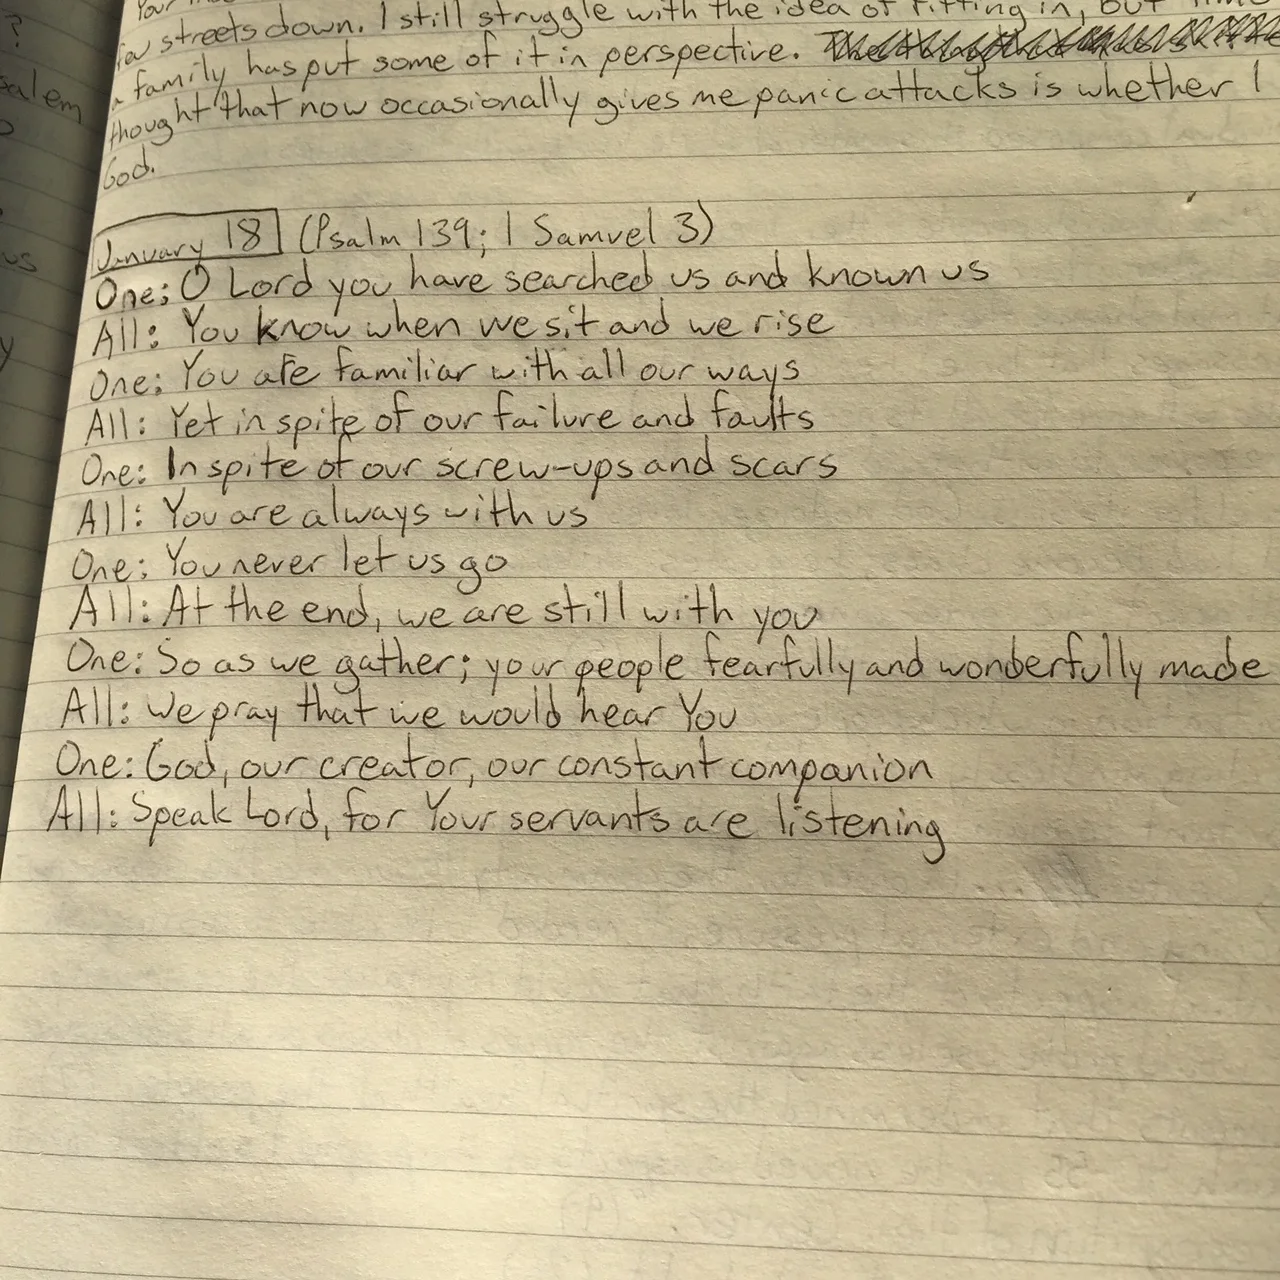 Your
few streets down. I still struggle with the idea of fitting in, but time
a family has put some of it in perspective.
thought that now occasionally gives me panic attacks is whether I
God.
January 18 (Psalm 139; 1 Samuel 3)
One: O Lord you have searched us and known us
All: You know when we sit and we rise
One: You are familiar with all our ways
All: Yet in spite of our failure and faults
One: In spite of our screw-ups and scars
All: You are always with us
One: You never let us go
All: At the end, we are still with you
One: So as we gather; your people fearfully and wonderfully made
All: We pray that we would hear You
One: God, our creator, our constant companion
All: Speak Lord, for Your servants are listening